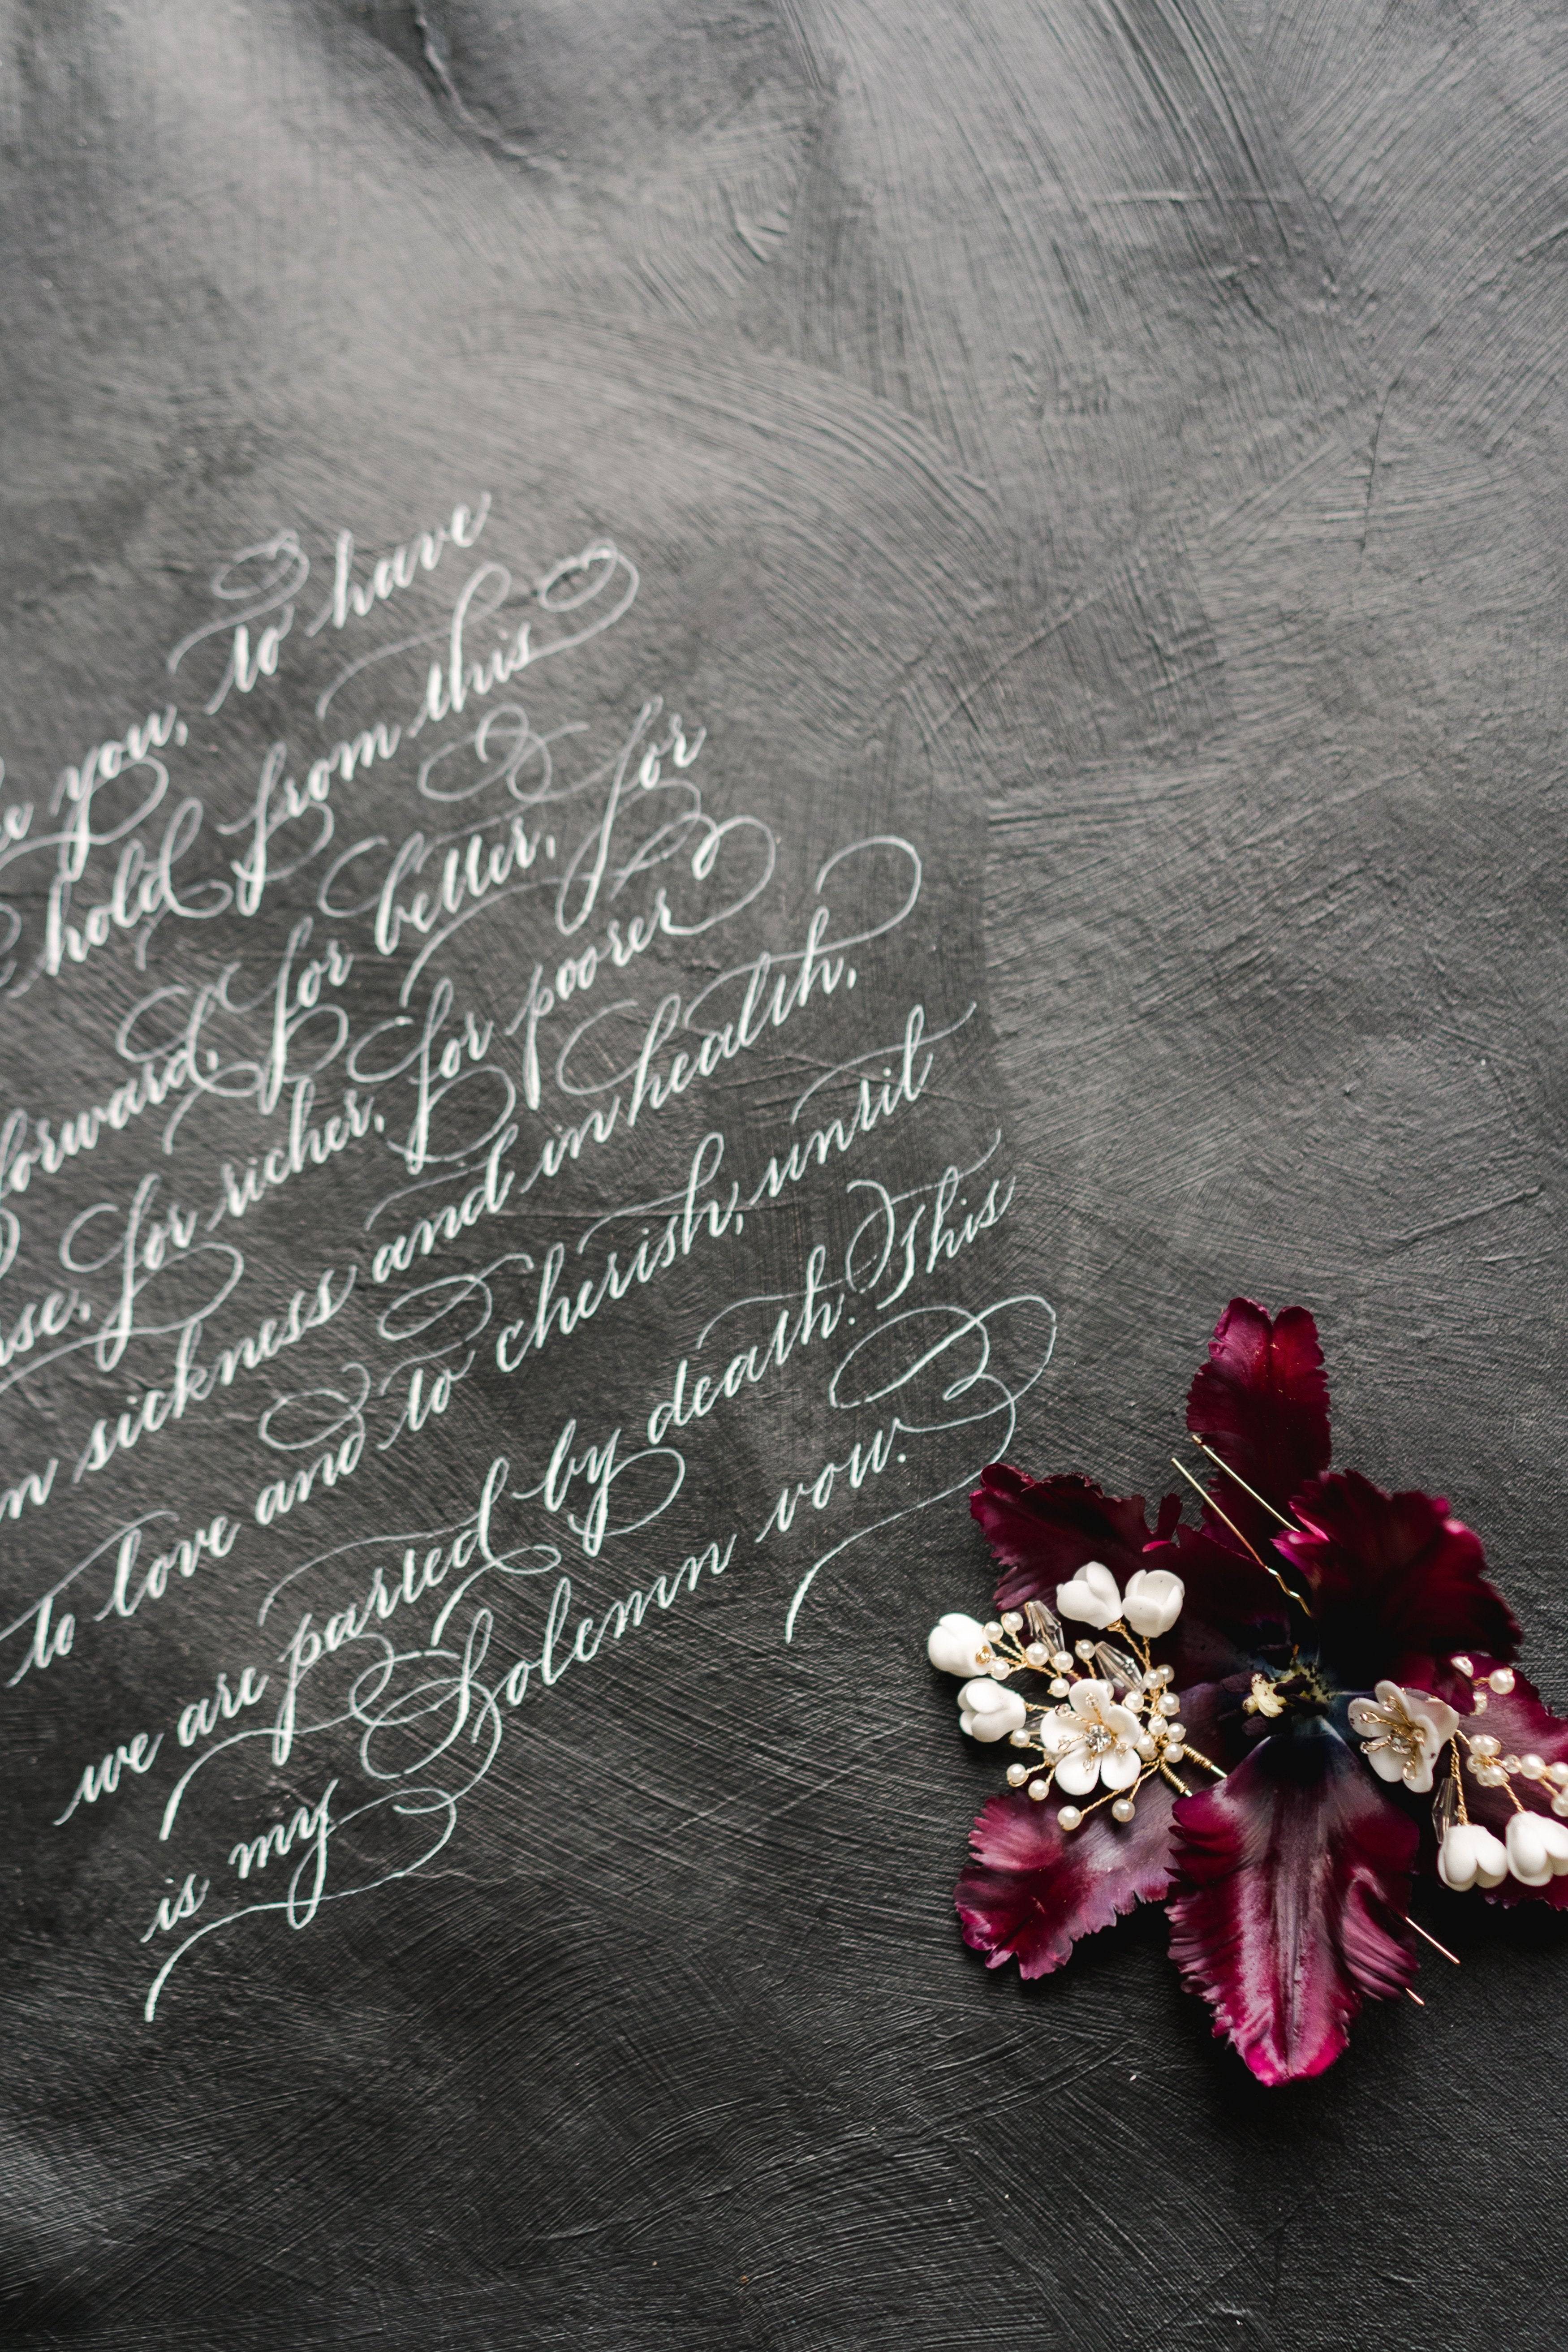 you, to have
hold from this
forward, for better, for
for richer, for poorer
sickness and in health,
to love and to cherish, until
we are parted by death. This
is my Solemn vow.